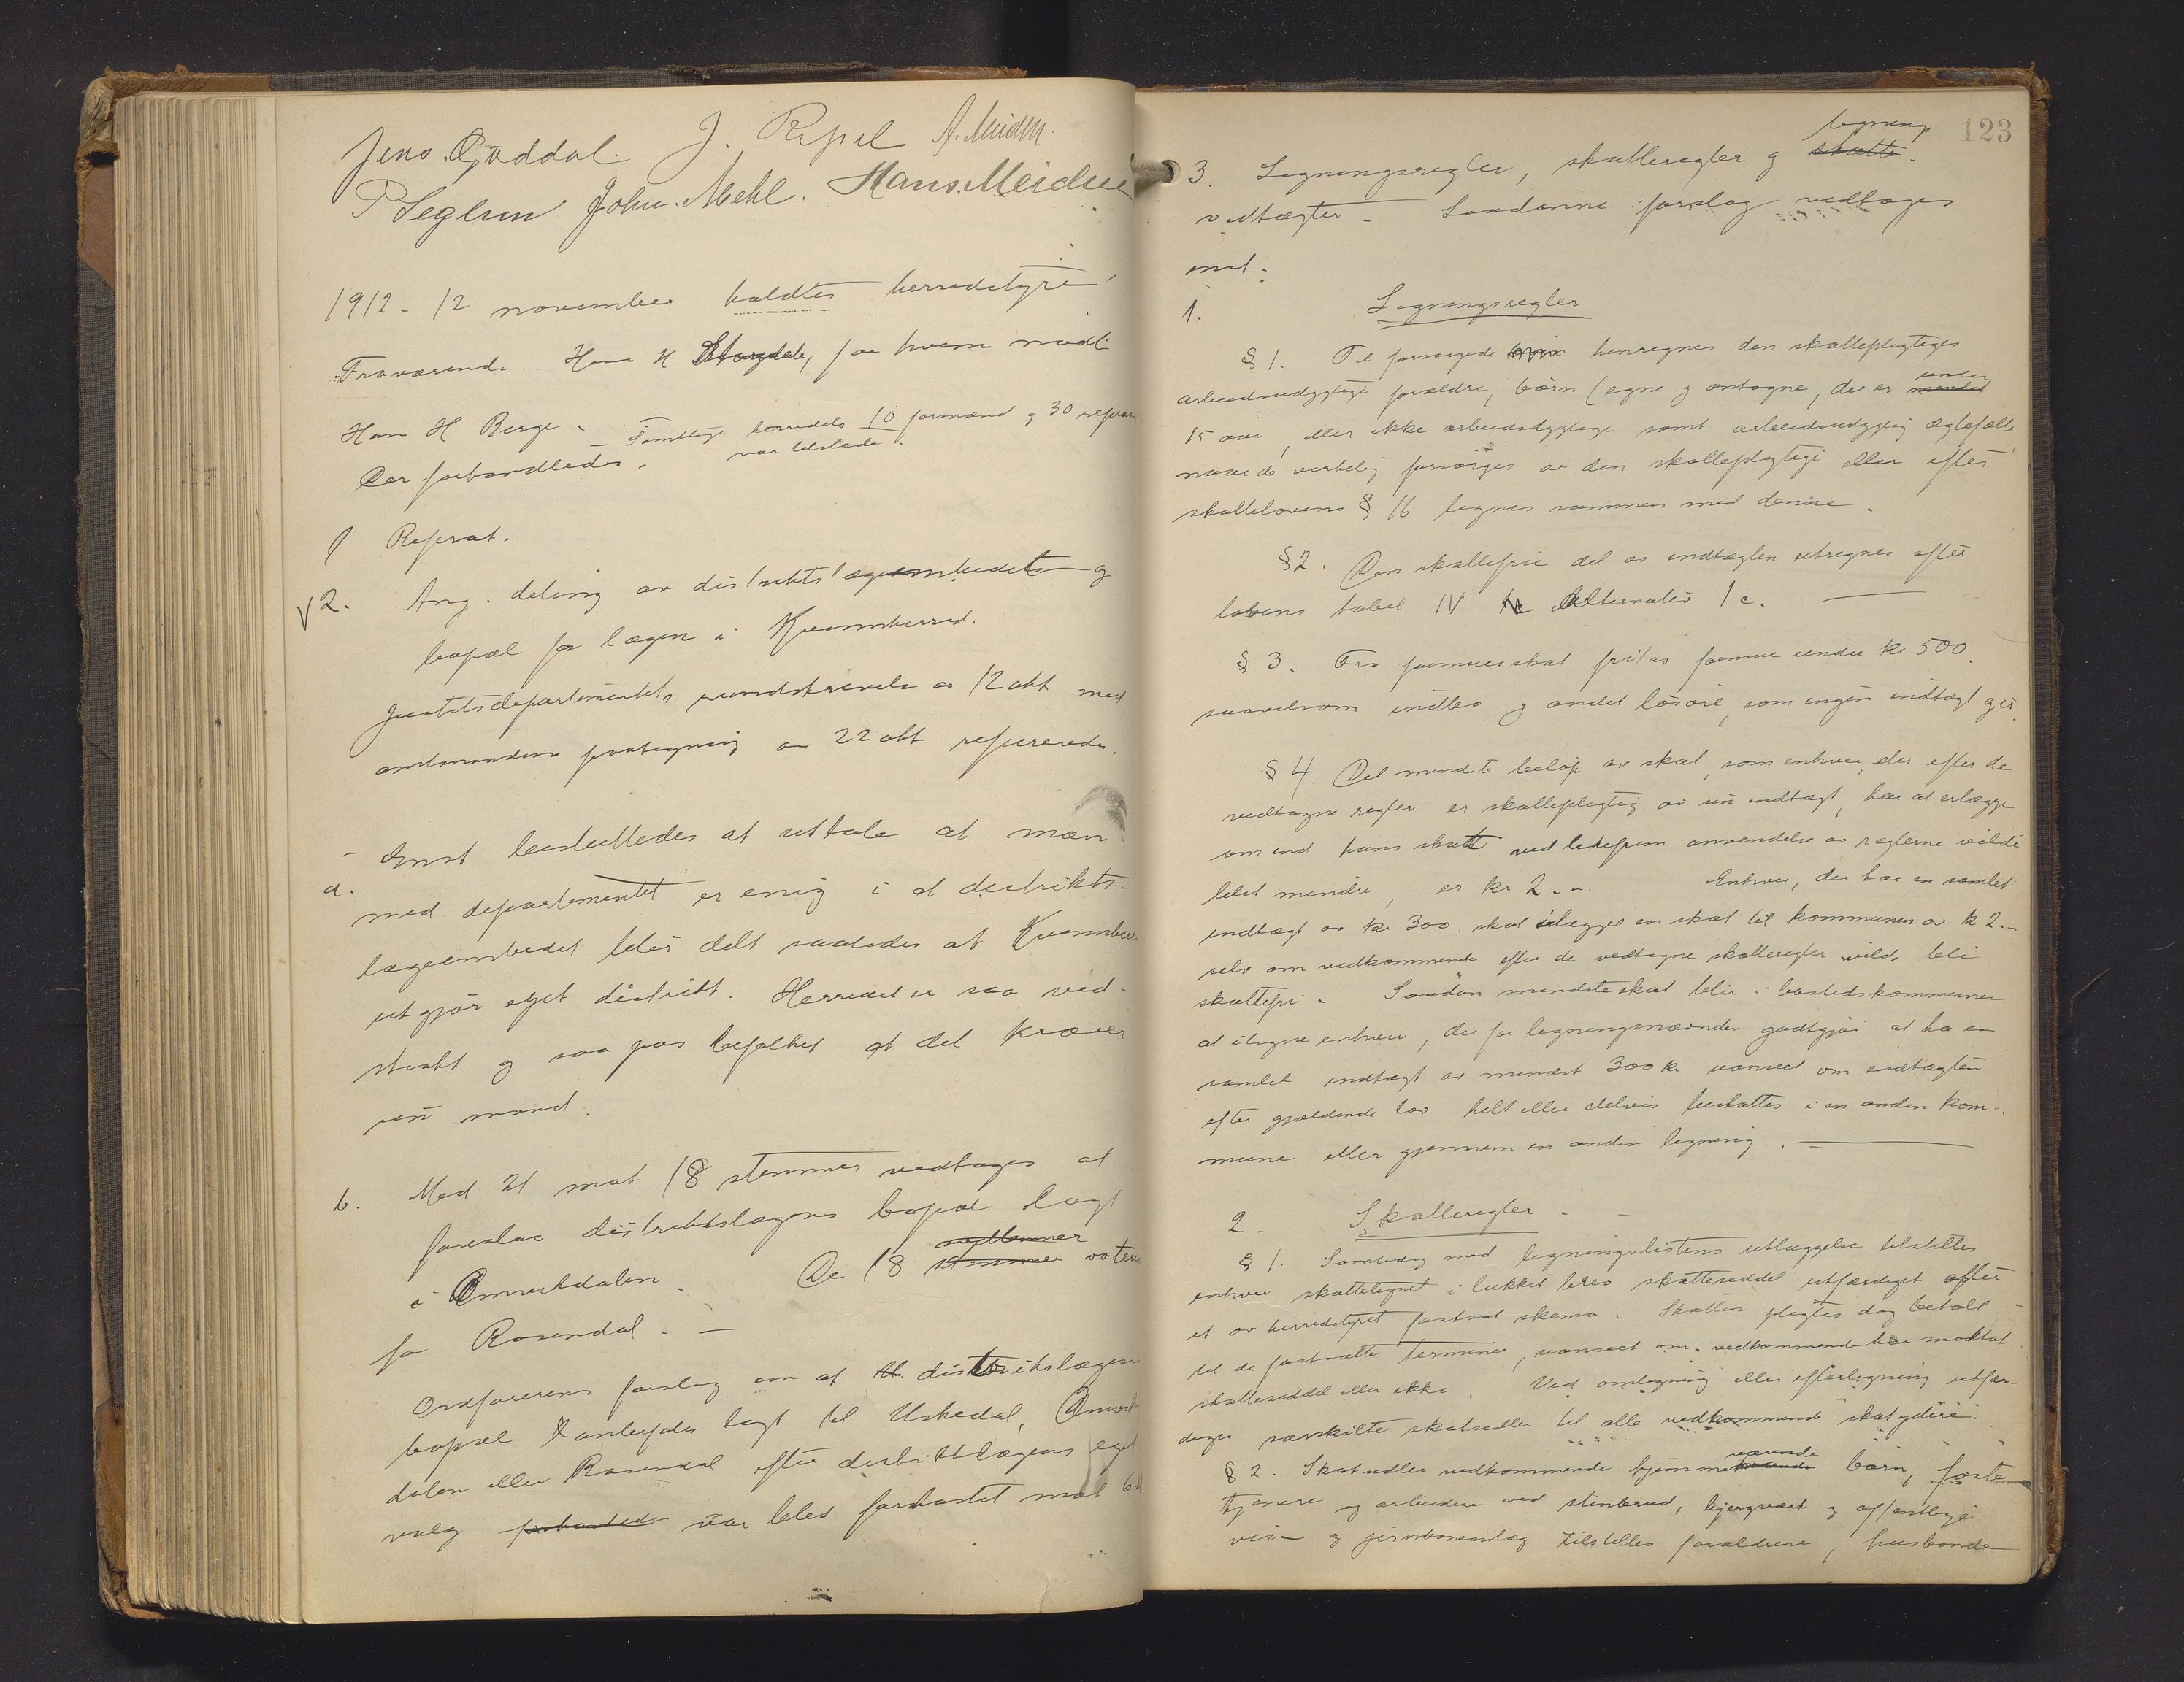 Jens Guddal. J. Ripel A. Meidell
P Seglem John. Mehl. Hans. Meidell
1912. 12 november holdtes herredstyre
Fraværende. Hans H , for hvem mødte
Hans H Berge. Samtlige herredets 10 formænd og 30 repræs
var tilstede.
Der forhandledes.
1 Referat.
V2. Ang. deling av distriktslægeembedet og
bopæl for lægen i Kvinnherred.
Justitsdepartementets rundskrivelse av 12 okt med
amtmandens paategning av 22 okt refereredes.
a. Enst besluttedes at uttale at man
med departementet er enig i at distrikts-
lægeembedet blir delt saaledes at Kvinnherr
utgjør eget distrikt. Herredet er saa vid-
strakt og saa pas befolket at det kræver
sin mand.
b. Med 21 mot 18 stemmer vedtoges at
foreslaa distriktslægens bopæl lagt
i Omvikdalen. De 18 medlemmer stemmer voter
for Rosendal. —
Ordførerens forslag om at distriktslægen
bopæl anbefales lagt til Uskedal, Omvik
dalen eller Rosendal efter distriktslægens eget
valg forkastedes var blet forkastet mot 6
123
3. Ligningsregler, skatteregler og lignings skatte
vedtægter. Saadanne forslag vedtoges
enst.
1. Ligningsregler
§ 1. Til forsørgede henregnes den skattepligtiges
arbeidsudygtige forældre, børn (egne og antagne, der er under mindst
15 aar, eller ikke arbeidsdygtige samt arbeidsudygtig ægtefælle
naar de virkelig forsørges av den skattepligtige eller efter
skattelovens § 16 lignes sammen med denne.
§ 2. Den skattefrie del av indtægten utregnes efter
lovens tabel IV Alternativ 1 c.
§ 3. Fra formuesskat fritas formue under kr 500
saavelsom indbo og andet løsøre, som ingen indtægt gir.
§ 4. Det mindste beløp av skat, som enhver, der efter de
vedtagne regler er skattepligtig av sin indtægt, har at erlægge
om end hans skatt ved likefrem anvendelse av reglerne vilde
blit mindre, er kr 2.-. Enhver, der har en samlet
indtægt av kr 300 skal ilægges en skat til kommunen av kr 2.-
selv om vedkommende efter de vedtagne skatteregler vilde bli
skattefri. Saadan mindsteskat blir i bostedskommunen
at iligne enhver, der for ligningsnævnden godtgjør at ha en
samlet indtægt av mindst 300 kr uanset om indtægten
efter gjældende lov helt eller delvis beskattes i en anden kom-
mune eller gjennem en anden ligning.
2. Skatteregler.
§ 1. Samtidig med ligningslistens utlæggelse tilstilles
enhver skattelignet i lukket brev skatteseddel utfærdiget efter
et av herredstyret fastsat skema. Skatten pligtes dog betalt
til de fastsatte terminer, uanset om vedkommende har modtat
skatteseddel eller ikke. Ved omligning eller efterligning utfær-
diges særskilte skatsedler til alle vedkommende skatydere.
§ 2. Skatsedler vedkommende hjemmeværende børn, foste
tjenere og arbeidere ved stenbrud, bjergverk og offentlige
vei- og jernbaneanlæg tilstilles forældrene, husbonde